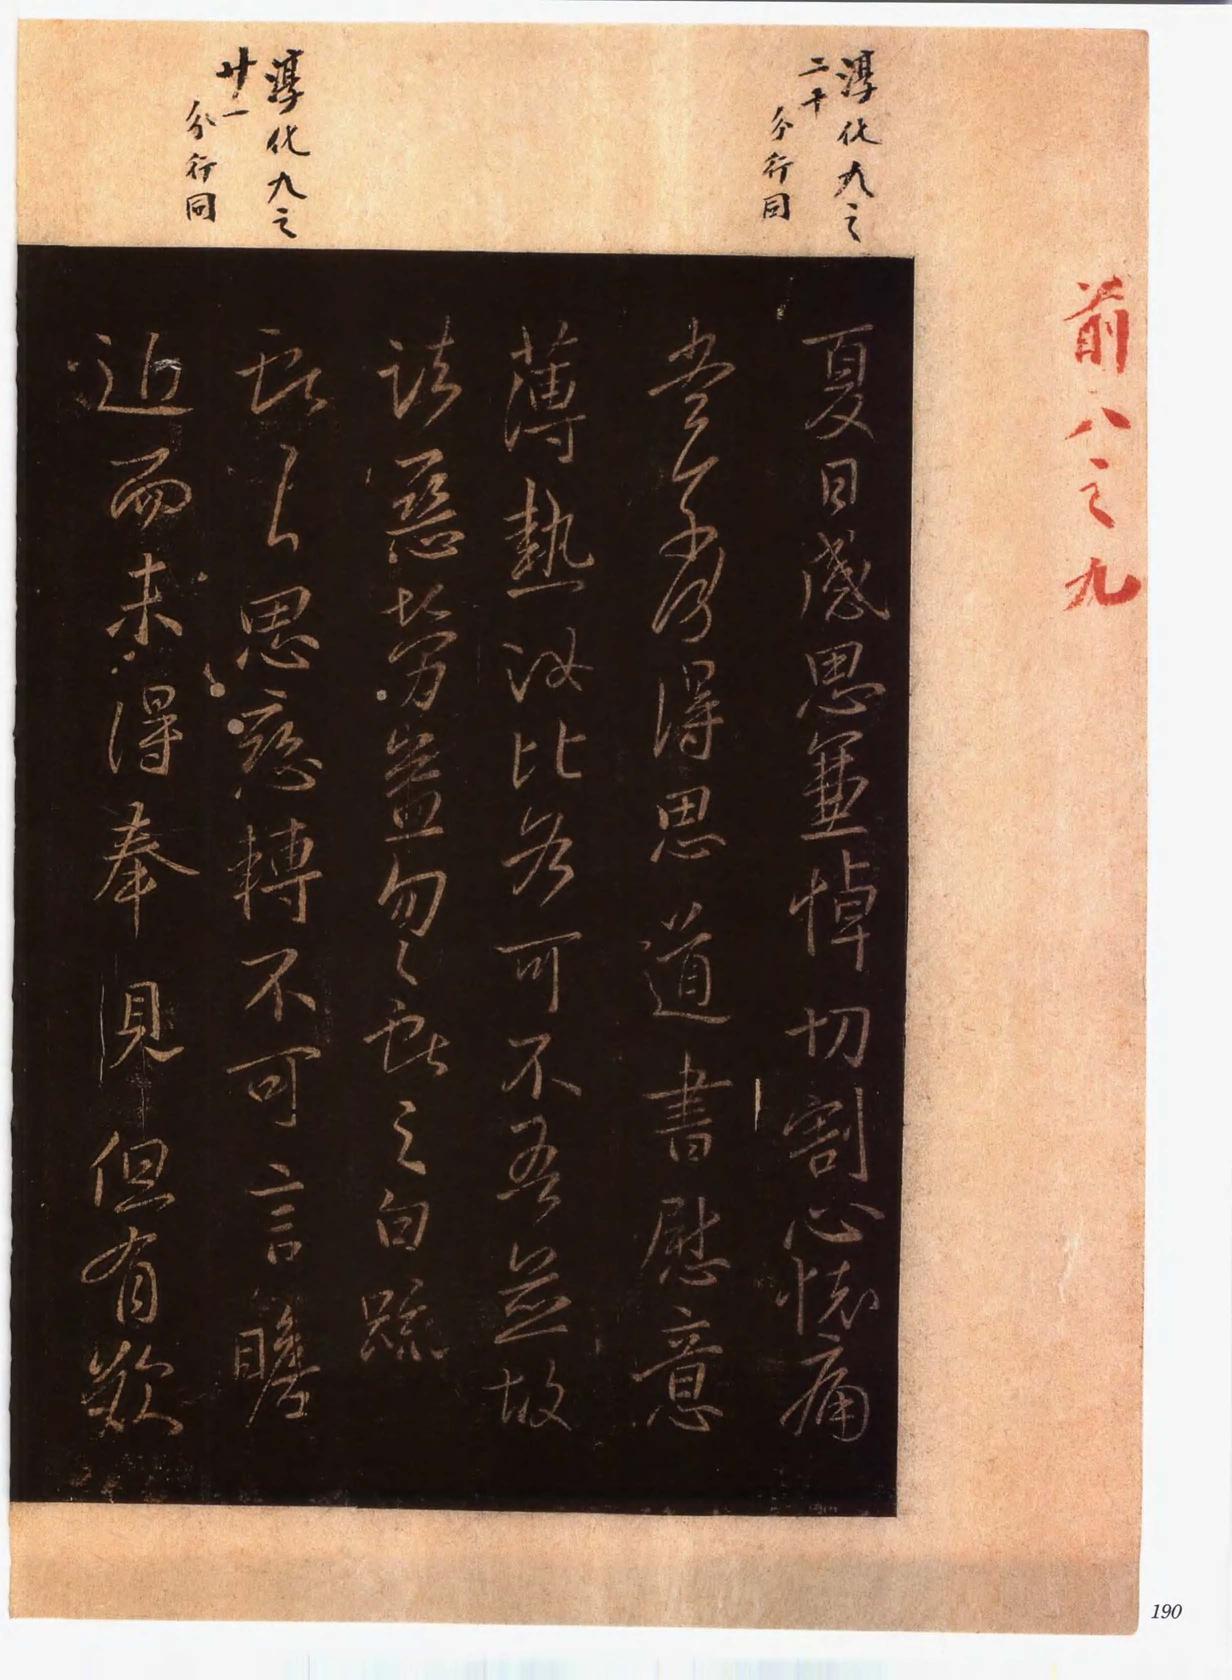 前八之九
淳化九之
二十
分行同
淳化九之
廿一
分行同
夏日感思兼悼切割心懷痛
當奈何得思道書慰意
薄熱汝比各可不吾並故
諸惡勞益勿〻獻之白疏
獻之思戀轉不可言瞻
近而未得奉見但有歎
190